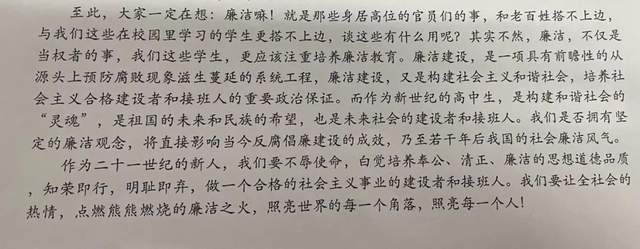 至此，大家一定在想：廉洁嘛！就是那些身居高位的官员们的事，和老百姓搭不上边，
与我们这些在校园里学习的学生更搭不上边，谈这些有什么用呢？其实不然，廉洁，不仅是
当权者的事，我们这些学生，更应该注重培养廉洁教育。廉洁建设，是一项具有前瞻性的从
源头上预防腐败现象滋生蔓延的系统工程，廉洁建设，又是构建社会主义和谐社会，培养社
会主义合格建设者和接班人的重要政治保证。而作为新世纪的高中生，是构建和谐社会的
“灵魂”，是祖国的未来和民族的希望，也是未来社会的建设者和接班人。我们是否拥有坚
定的廉洁观念，将直接影响当今反腐倡廉建设的成效，乃至若干年后我国的社会廉洁风气。
作为二十一世纪的新人，我们要不辱使命，白觉培养奉公、清正、廉洁的思想道德品质
，知荣即行，明耻即弃，做一个合格的社会主义事业的建设者和接班人。我们要让全社会的
热情，点燃熊熊燃烧的廉洁之火，照亮世界的每一个角落，照亮每一个人！